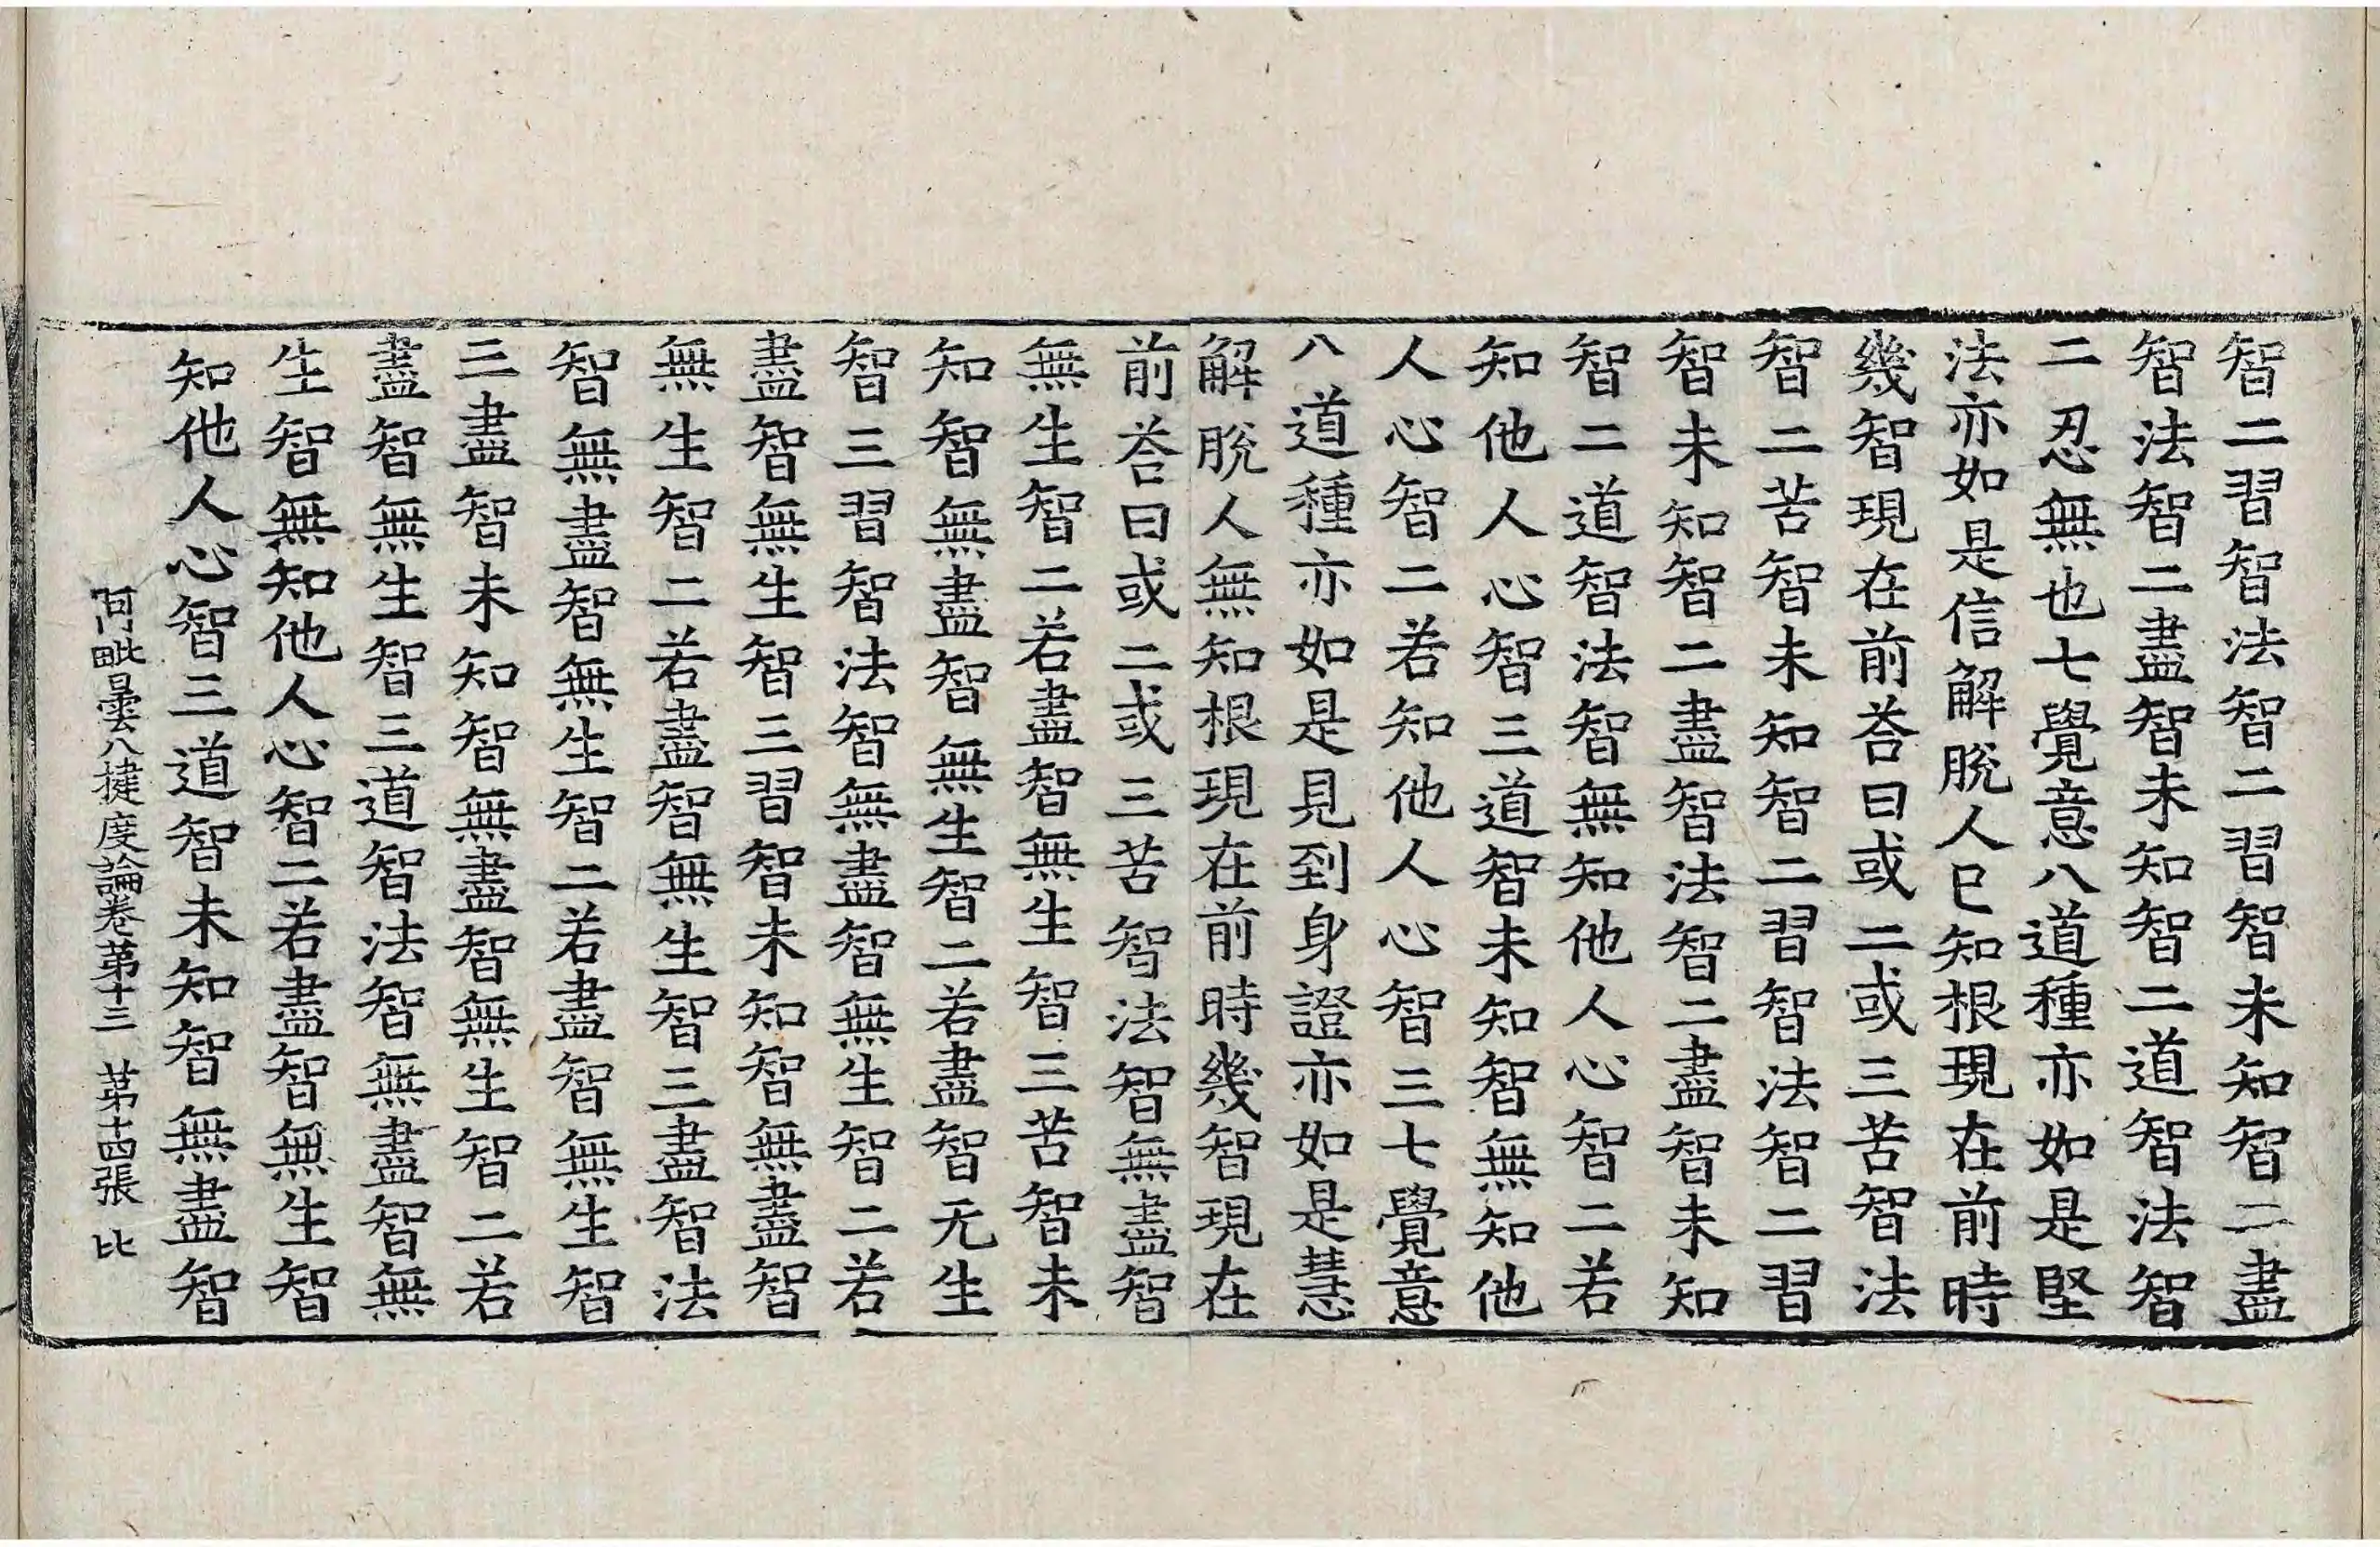 智二習智法智二習智未知智二盡
智法智二盡智未知智二道智法智
二忍無也七覺意八道種亦如是堅
法亦如是信解脫人巳知根現在前時
幾智現在前荅曰或二或三苦智法
智二苦智未知智二習智法智二習
智未知智二盡智法智二盡智未知
智二道智法智無知他人心智二若
知他人心智三道智未知智無知他
人心智二若知他人心智三七覺意
八道種亦如是見到身證亦如是慧
解脫人無知根現在前時幾智現在
前荅曰或二或三苦智法智無盡智
無生智二若盡智無生智三苦智未
知智無盡智無生智二若盡智无生
智三習智法智無盡智無生智二若
盡智無生智三習智未知智無盡智
無生智二若盡智無生智三盡智法
智無盡智無生智二若盡智無生智
三盡智未知智無盡智無生智二若
盡智無生智三道智法智無盡智無
生智無知他人心智二若盡智無生智
知他人心智三道智未知智無盡智
阿毗曇八揵度論卷第十三 第十四張 比